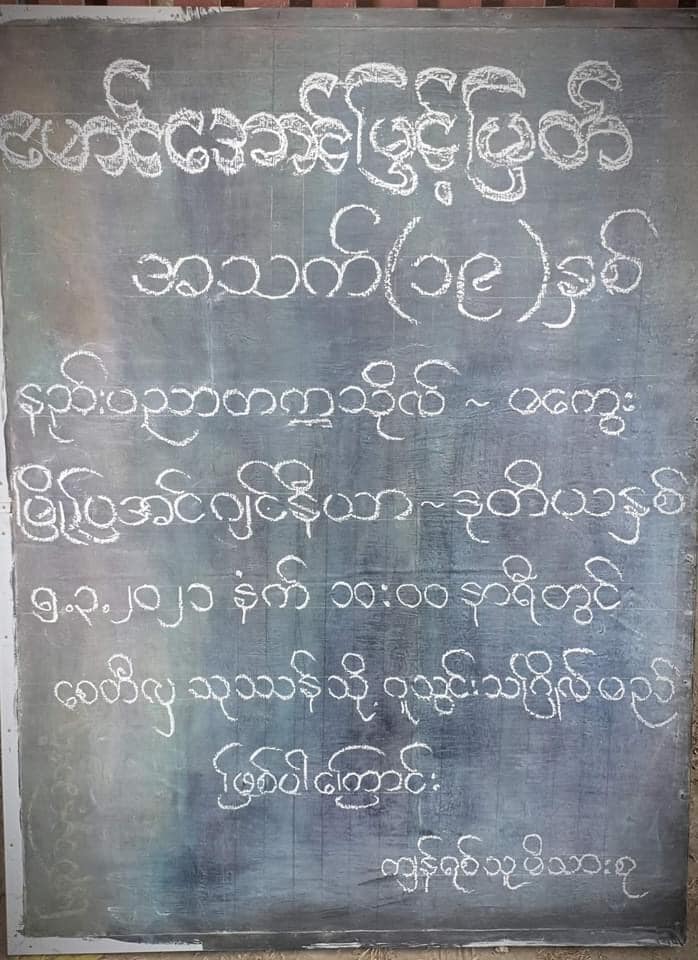 မောင်အောင်မြင့်မြတ်
အသက်(၁၉)နှစ်
နည်းပညာတက္ကသိုလ် ~ မကွေး
မြို့ပြအင်ဂျင်နီယာ~ဒုတိယနှစ်
၅.၃.၂၀၂၁ နံနက် ၁၀:၀၀ နာရီတွင်
စေတီလှ သုဿန်သို့ ဂူသွင်းသင်္ဂြိုလ်မည်
ဖြစ်ပါကြောင်း
ကျန်ရစ်သူမိသားစု